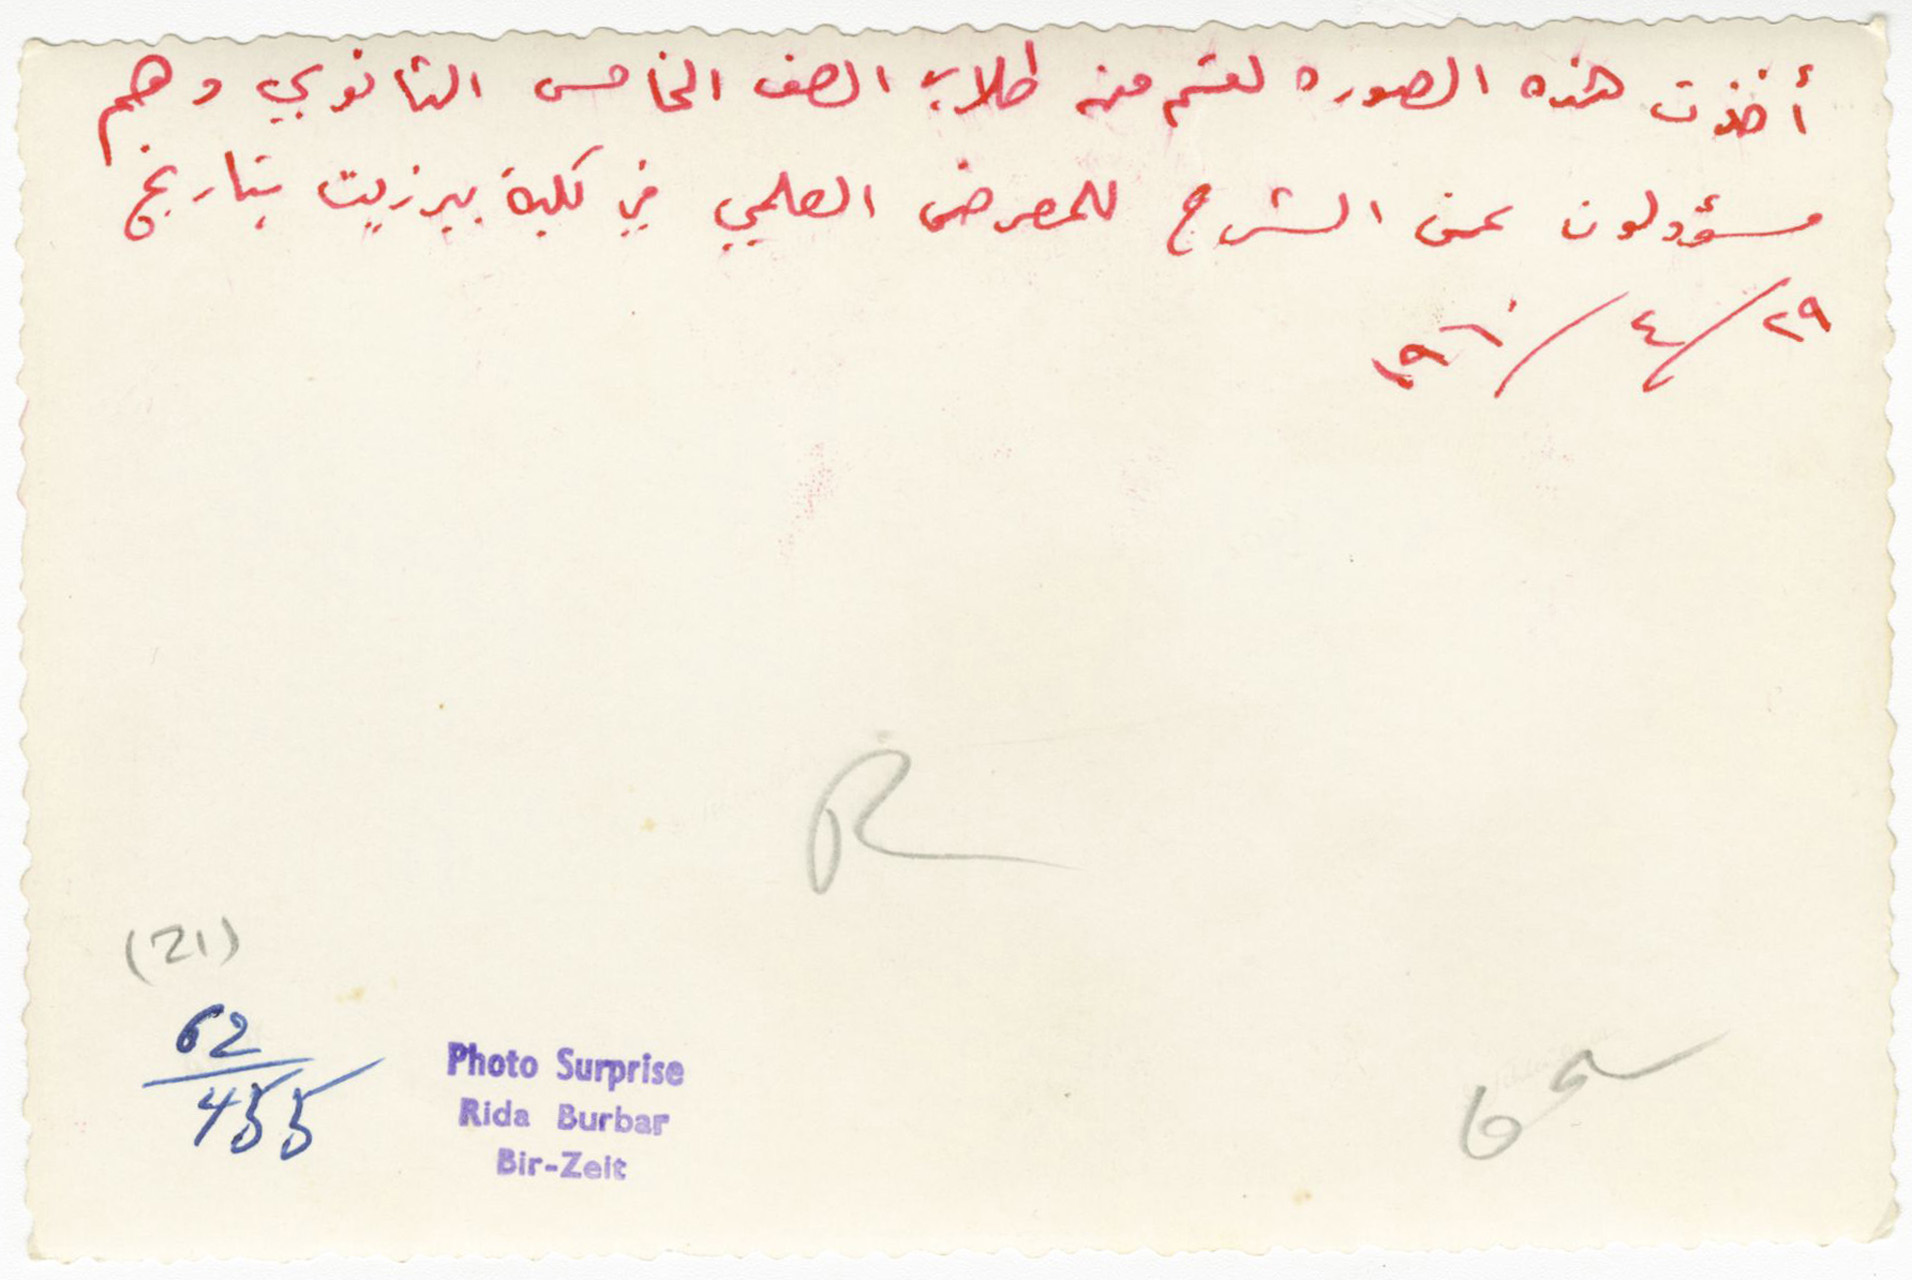 أخذت هذه الصوره لقسم من طلاب الصف الخامس الثانوي وهم
مسؤولون عن الشرح للمعرض العلمي في كلية بيرزيت بتاريخ
٢٩/٤/١٩٦٠
R
(21)
62
455
Photo Surprise
Rida Burbar
Bir-Zeit